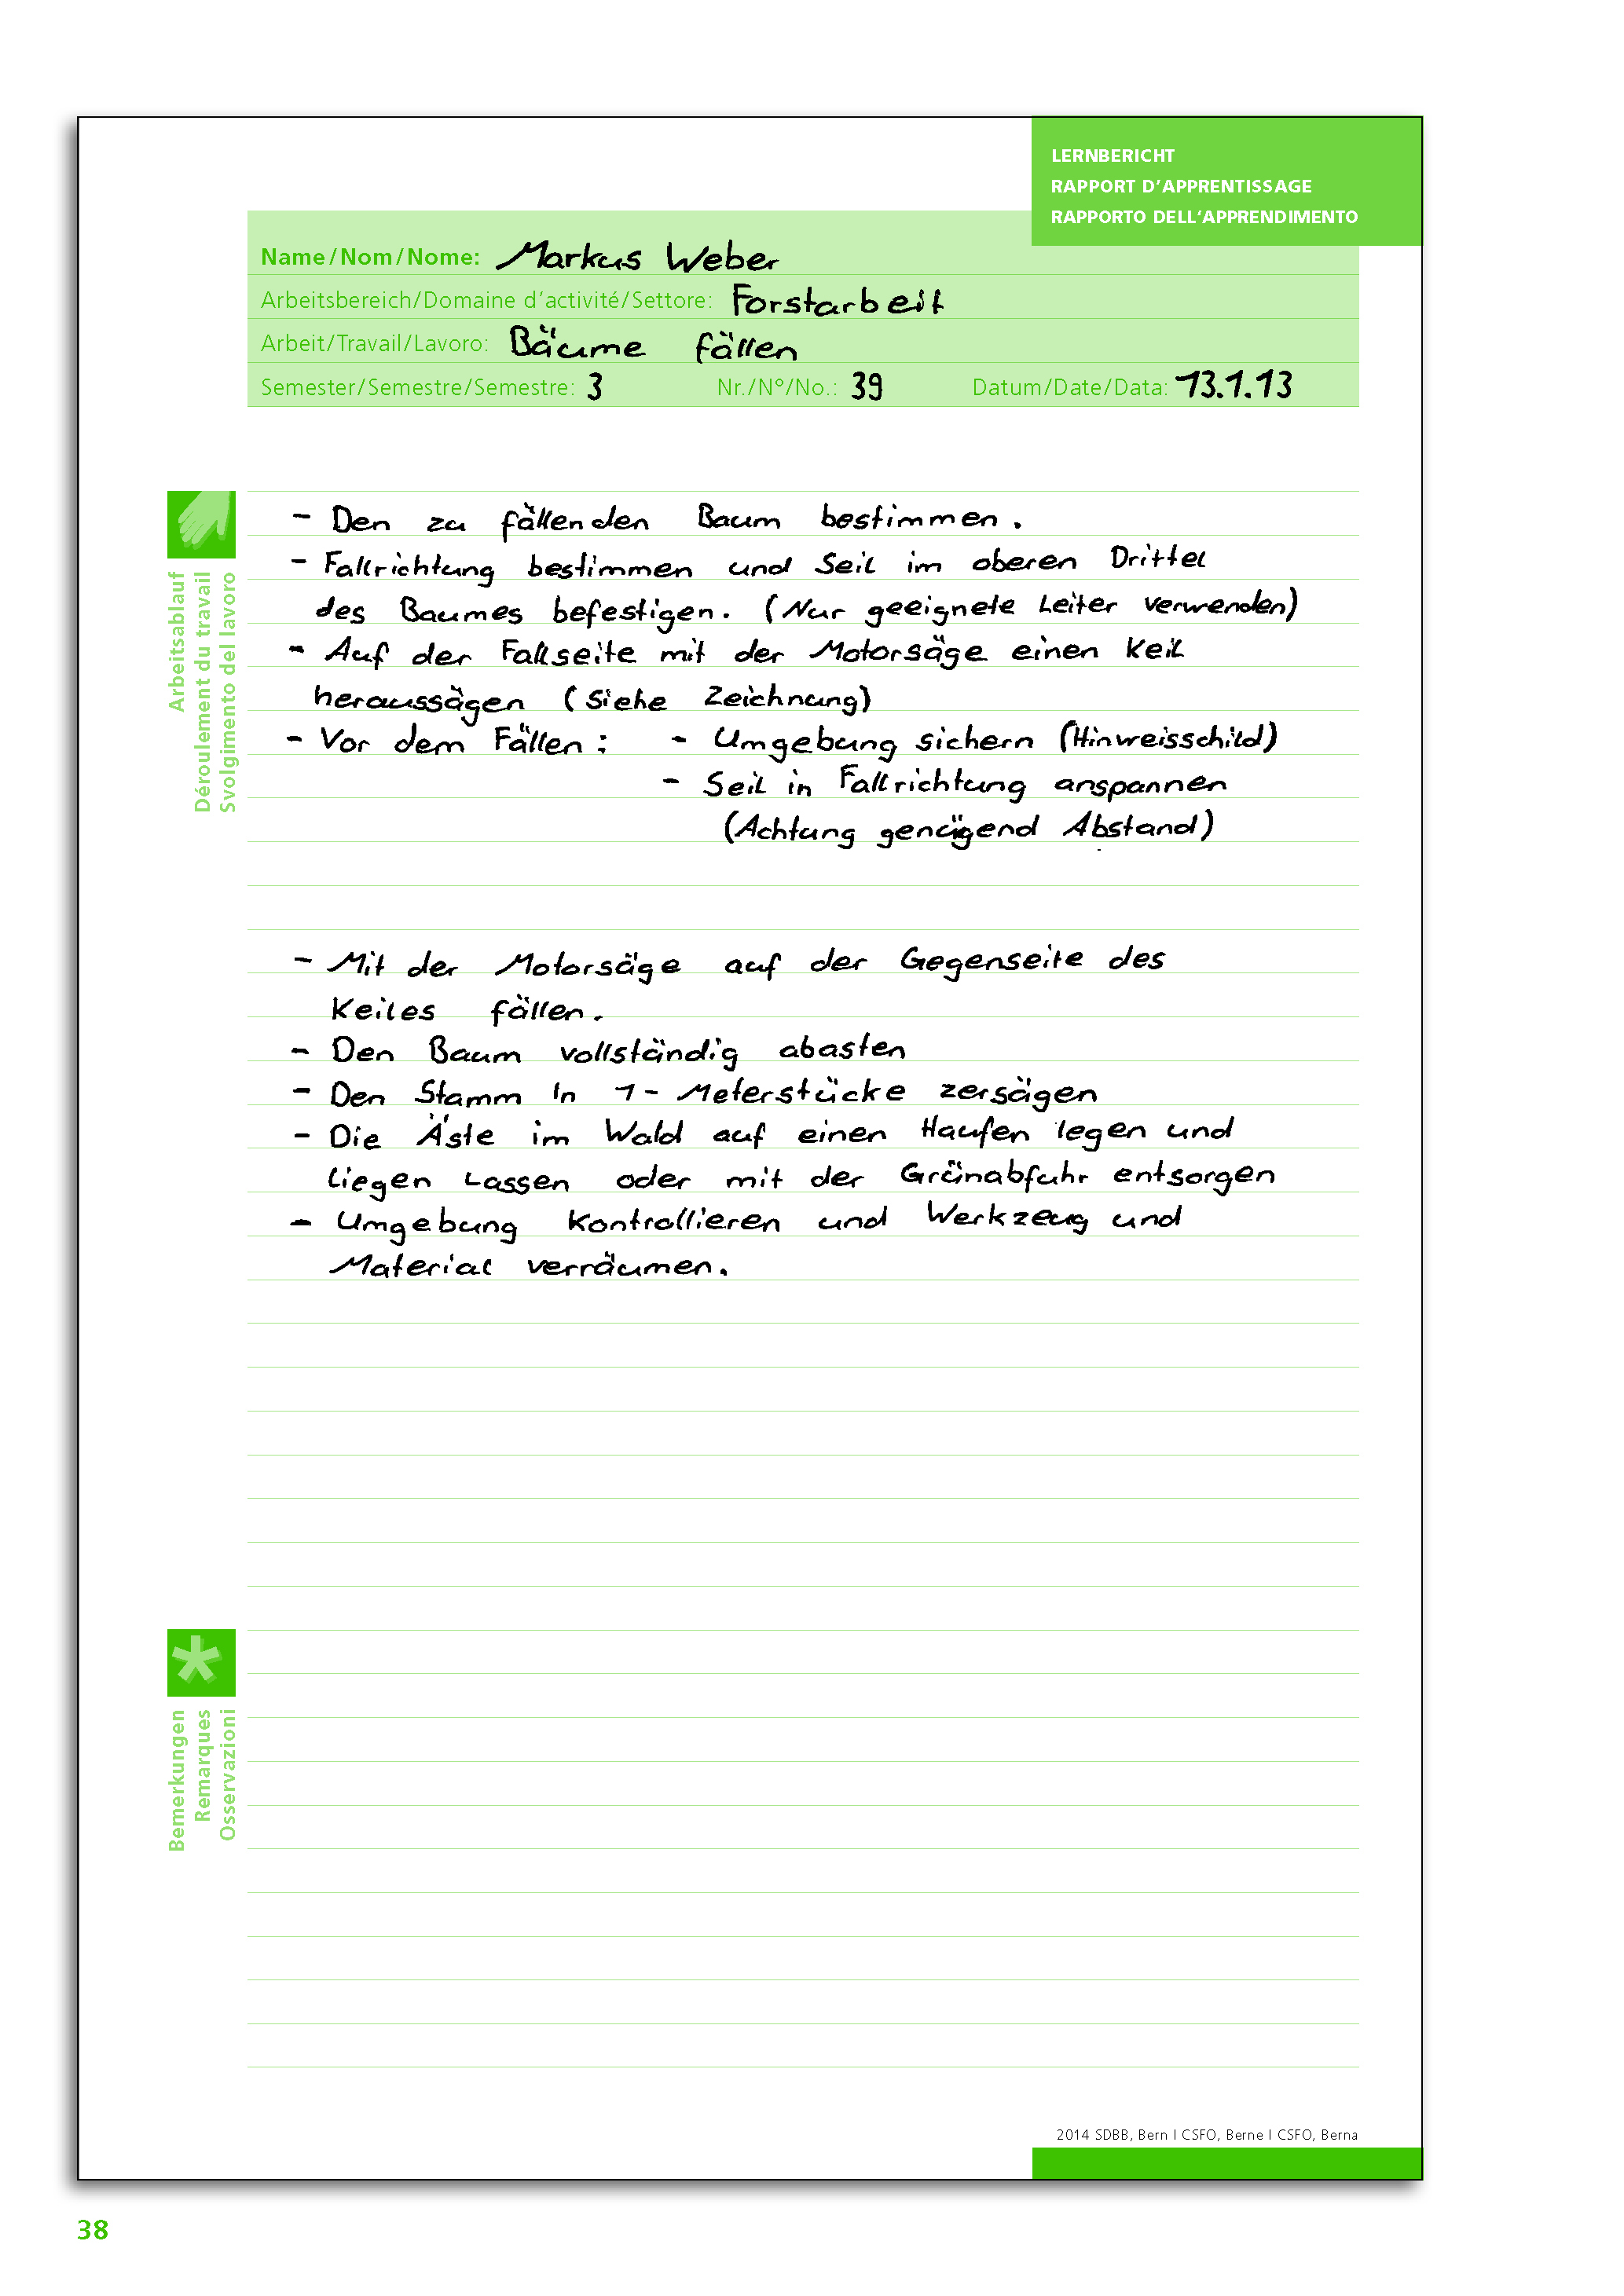 LERNBERICHT
RAPPORT D'APPRENTISSAGE
RAPPORTO DELL'APPRENDIMENTO
Name/Nom/Nome: Markus Weber
Arbeitsbereich/Domaine d'activité/Settore: Forstarbeit
Arbeit/Travail/Lavoro: Bäume fällen
Semester/Semestre/Semestre: 3 Nr./N°/No.: 39 Datum/Date/Data: 13.1.13
Arbeitsablauf
Déroulement du travail
Svolgimento del lavoro
- Den zu fällenden Baum bestimmen.
- Fallrichtung bestimmen und Seil im oberen Drittel
des Baumes befestigen. (Nur geeignete Leiter verwenden)
- Auf der Fallseite mit der Motorsäge einen Keil
heraussägen (Siehe Zeichnung)
- Vor dem Fällen: - Umgebung sichern (Hinweisschild)
- Seil in Fallrichtung anspannen
(Achtung genügend Abstand)
- Mit der Motorsäge auf der Gegenseite des
Keiles fällen.
- Den Baum vollständig abasten
- Den Stamm in 1-Meterstücke zersägen
- Die Äste im Wald auf einen Haufen legen und
liegen lassen oder mit der Grünabfuhr entsorgen
- Umgebung kontrollieren und Werkzeug und
Material verräumen.
Bemerkungen
Remarques
Osservazioni
2014 SDBB, Bern I CSFO, Berne I CSFO, Berna
38